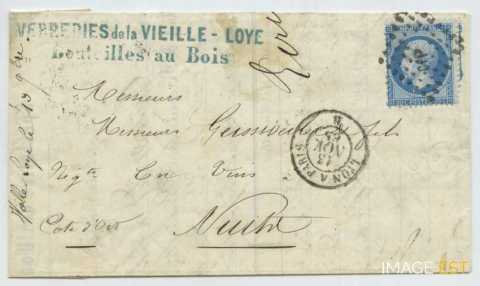 VERRERIES de la VIEILLE - LOYE
Bouteilles au Bois
Messieurs
Messieurs & fils
Negts En Vins
Cote d'Or Nuits
LYON A PARIS
13
NOV
65
B
Vieille Loye le 13 9bre
IMAGE EST